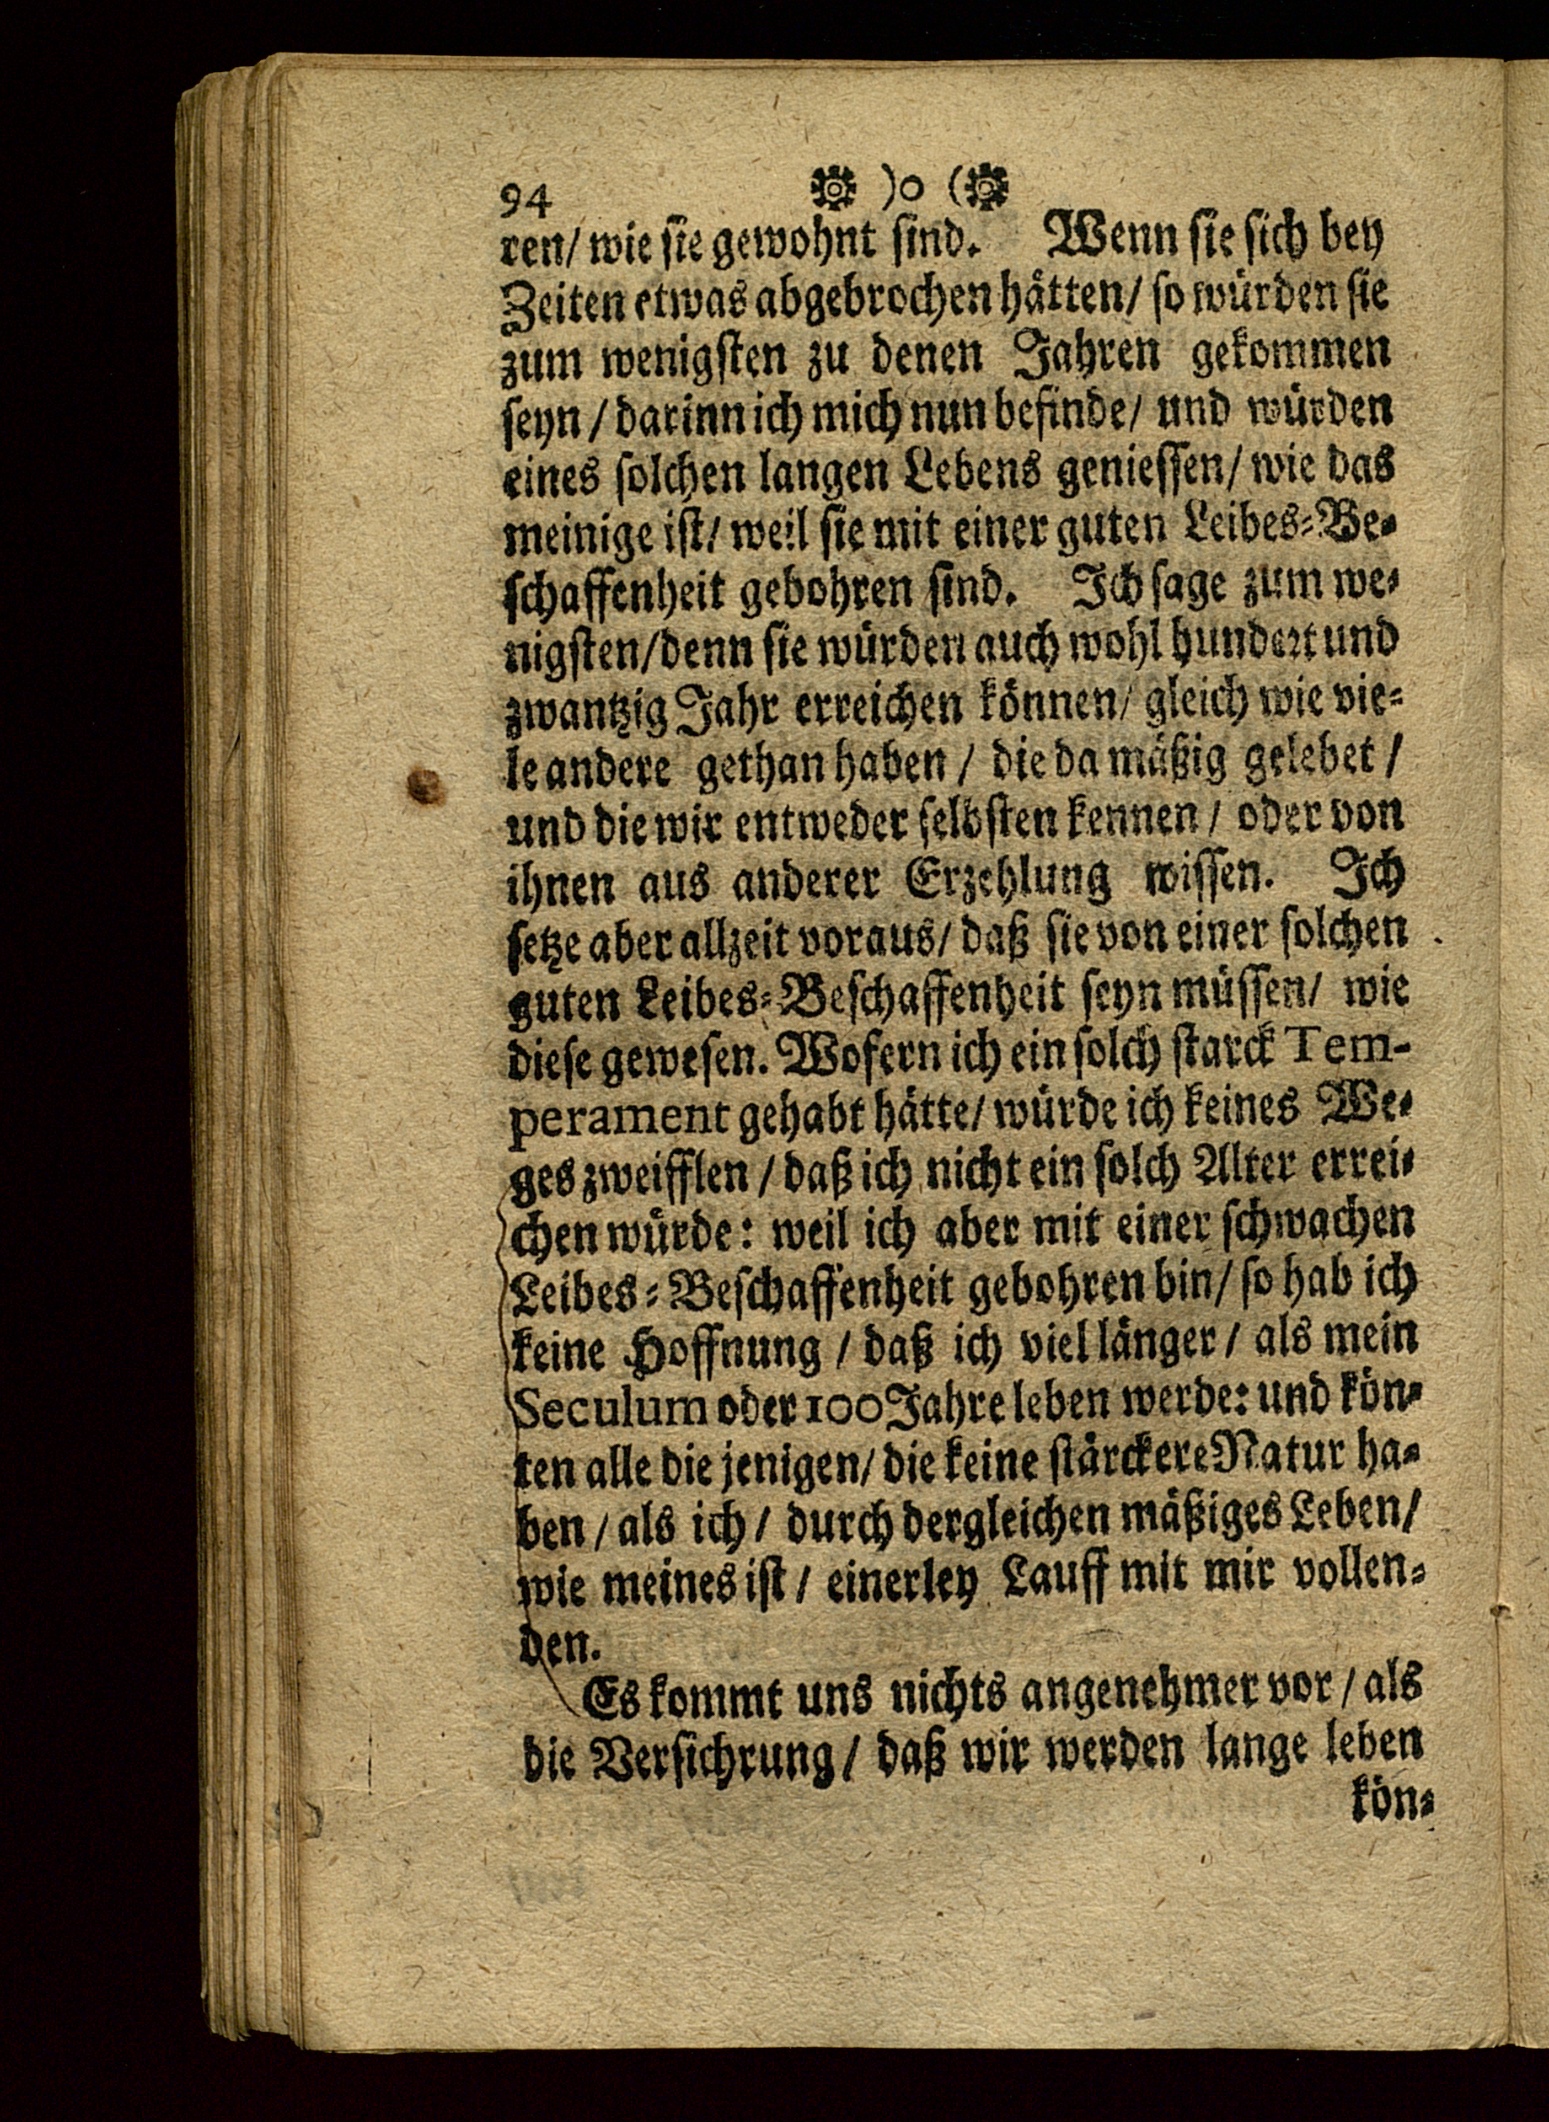 94 )o(
ren/ wie sie gewohnt sind. Wenn sie sich bey
Zeiten etwas abgebrochen hätten/ so würden sie
zum wenigsten zu denen Jahren gekommen
seyn / darinn ich mich nun befinde/ und würden
eines solchen langen Lebens geniessen/ wie das
meinige ist/ weil sie mit einer guten Leibes-Be-
schaffenheit gebohren sind. Ich sage zum we-
nigsten/denn sie würden auch wohl hundert und
zwantzig Jahr erreichen können/ gleich wie vie-
le andere gethan haben / die da mäßig gelebet /
und die wir entweder selbsten kennen / oder von
ihnen aus anderer Erzehlung wissen. Ich
setze aber allzeit voraus/ daß sie von einer solchen
guten Leibes-Beschaffenheit seyn müssen/ wie
diese gewesen. Wofern ich ein solch starck Tem-
perament gehabt hätte/ würde ich keines We-
ges zweifflen / daß ich nicht ein solch Alter errei-
chen würde: weil ich aber mit einer schwachen
Leibes-Beschaffenheit gebohren bin/ so hab ich
keine Hoffnung / daß ich viel länger / als mein
Seculum oder 100 Jahre leben werde: und kön-
ten alle die jenigen/ die keine stärckere Natur ha-
ben / als ich / durch dergleichen mäßiges Leben/
wie meines ist / einerley Lauff mit mir vollen-
den.
Es kommt uns nichts angenehmer vor / als
die Versichrung / daß wir werden lange leben
kön-